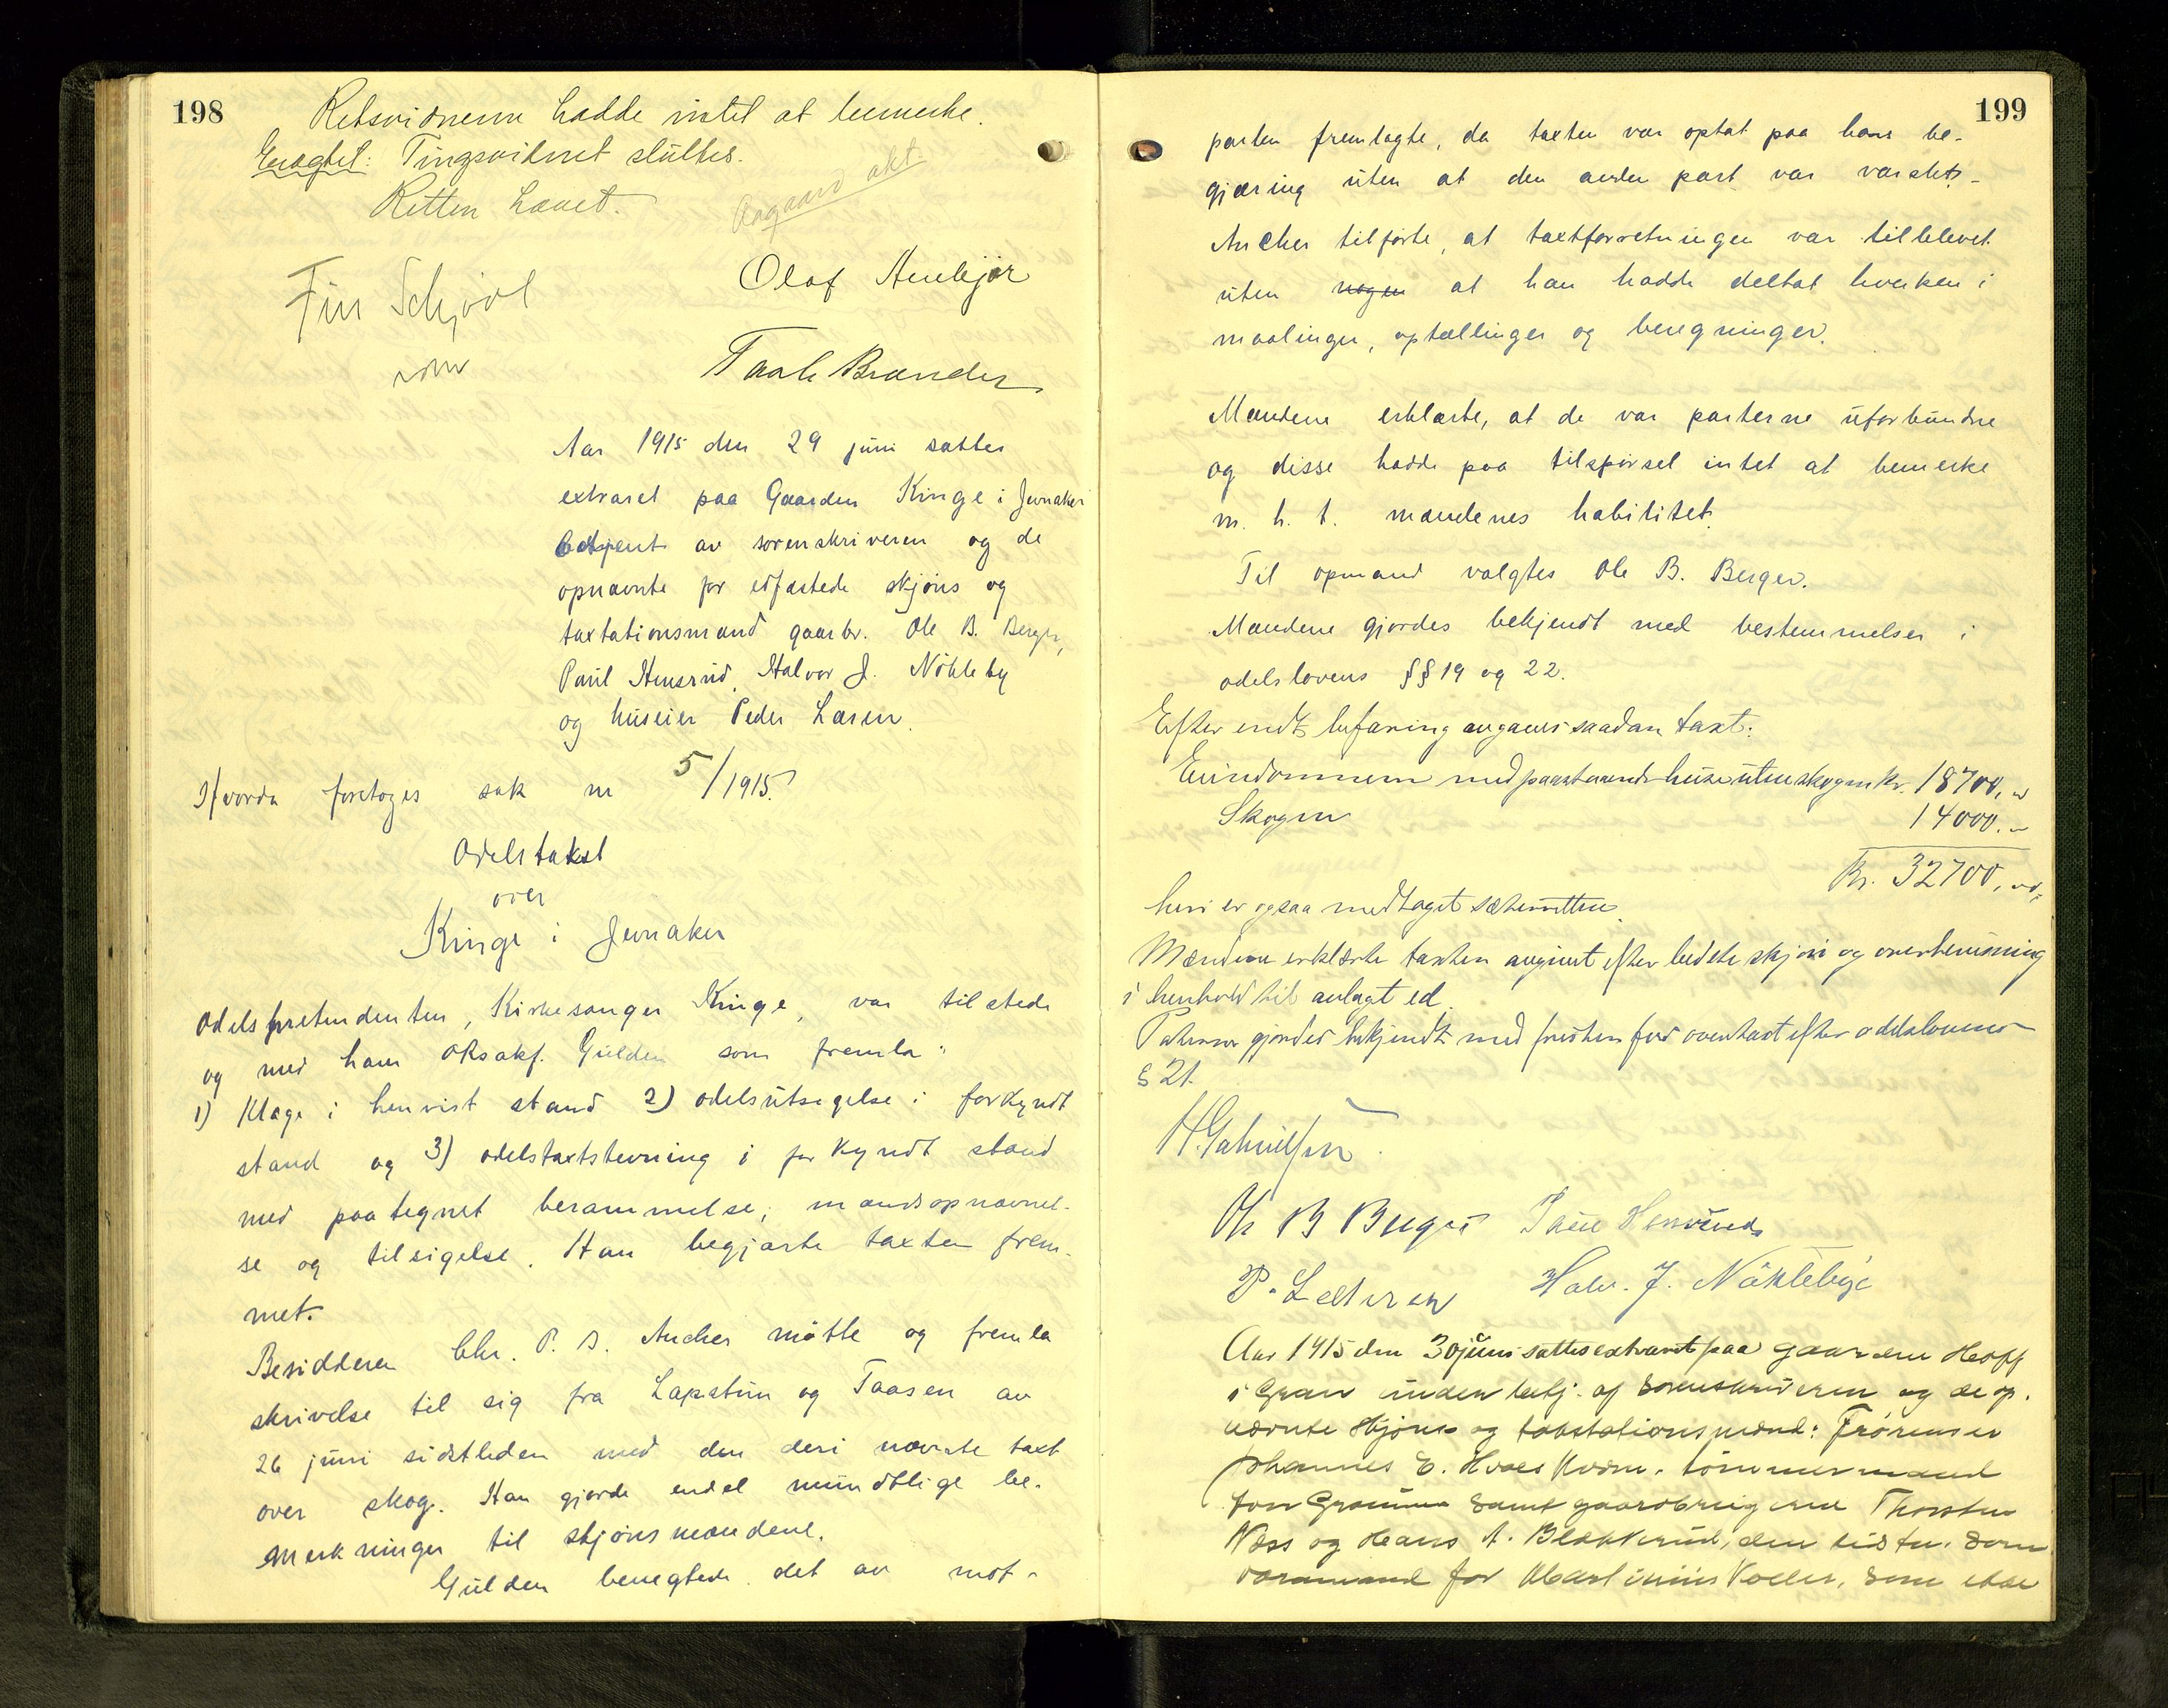 198
Retsvidnerne hadde intet at bemerke.
Eragtet: Tingsvidnet sluttes.
Retten hævet.
Aagaard akt
Fin Schjödt
Olaf
Taale Brænden
Aar 1915 den 29 juni sattes
extraret paa Gaarden Kinge i Jevnaker
betjent av sorenskriveren og de
opnævnte før edfæstede skjøns og
taxtationsmænd gaarbr. Ole B. Berger,
Paul Hensrud, Halvor J. Nökleby
og huseier Peder Larsen.
Hvorda foretoges sak nr 5/1915.
Odelstakst
over
Kinge i Jevnaker
Odelspretendenten, Kirkesanger Kinge, var tilstede
og med ham oRsakf. Gulden som fremla:
1) Klage i henvist stand 2) odelsutsigelse i forkyndt
stand og 3) odelstaxtstevning i forkyndt stand
med paategnet berammelse, mandsopnævnel-
se og tilsigelse. Han begjærte taxten frem-
met.
Besidderen Chr. P. B. Ancher møtte og fremla
skrivelse til sig fra Lapstun og Taasen av
26 juni sidstleden med den deri nævnte taxt
over skog. Han gjorde endel mundtlige be-
merkninger til skjønsmændene.
Gulden benegtede det av mot-
199
parten fremlagte, da taxten var optat paa hans be-
gjæring uten at den anden part var varslet.
Ancher tilførte, at taxtforretningen var tilblevet
uten nogen at han hadde deltat hverken i
maalinger, optællinger og beregninger.
Mændene erklærte, at de var parterne uforbundne
og disse hadde paa tilspørsel intet at bemerke
m. h. t. mændenes habilitet.
Til opmand valgtes Ole B. Berger.
Mændene gjordes bekjendt med bestemmelser i
odelslovens §§ 19 og 22.
Efter endt befaring avgaves saadan taxt:
Eiendommen med paastaaende huse uten skogen kr. 18700, "
Skogen 14000. "
Kr. 32700, "
heri er ogsaa medtaget sæterretten.
Mændene erklærte taxten avgivet efter bedste skjøn og overbevisning
i henhold til avlagt ed.
Parterne gjordes bekjendt med fristen for overtaxt efter odelslovens
§ 21.
Ole B Berger Paul Hensrud
P. Larsen Halv. J. Nökleby
Aar 1915 den 30 juni sattes extraret paa gaarden Hoff
i Gran under betj. af Sorenskriveren og de op-
nævnte skjøns og takstationsmænd:
Johannes E. tømmermand
samt gaardbrugerne Thorsten
Næss og Hans A. Blekkerud, den sidste som
varamand for som ikke